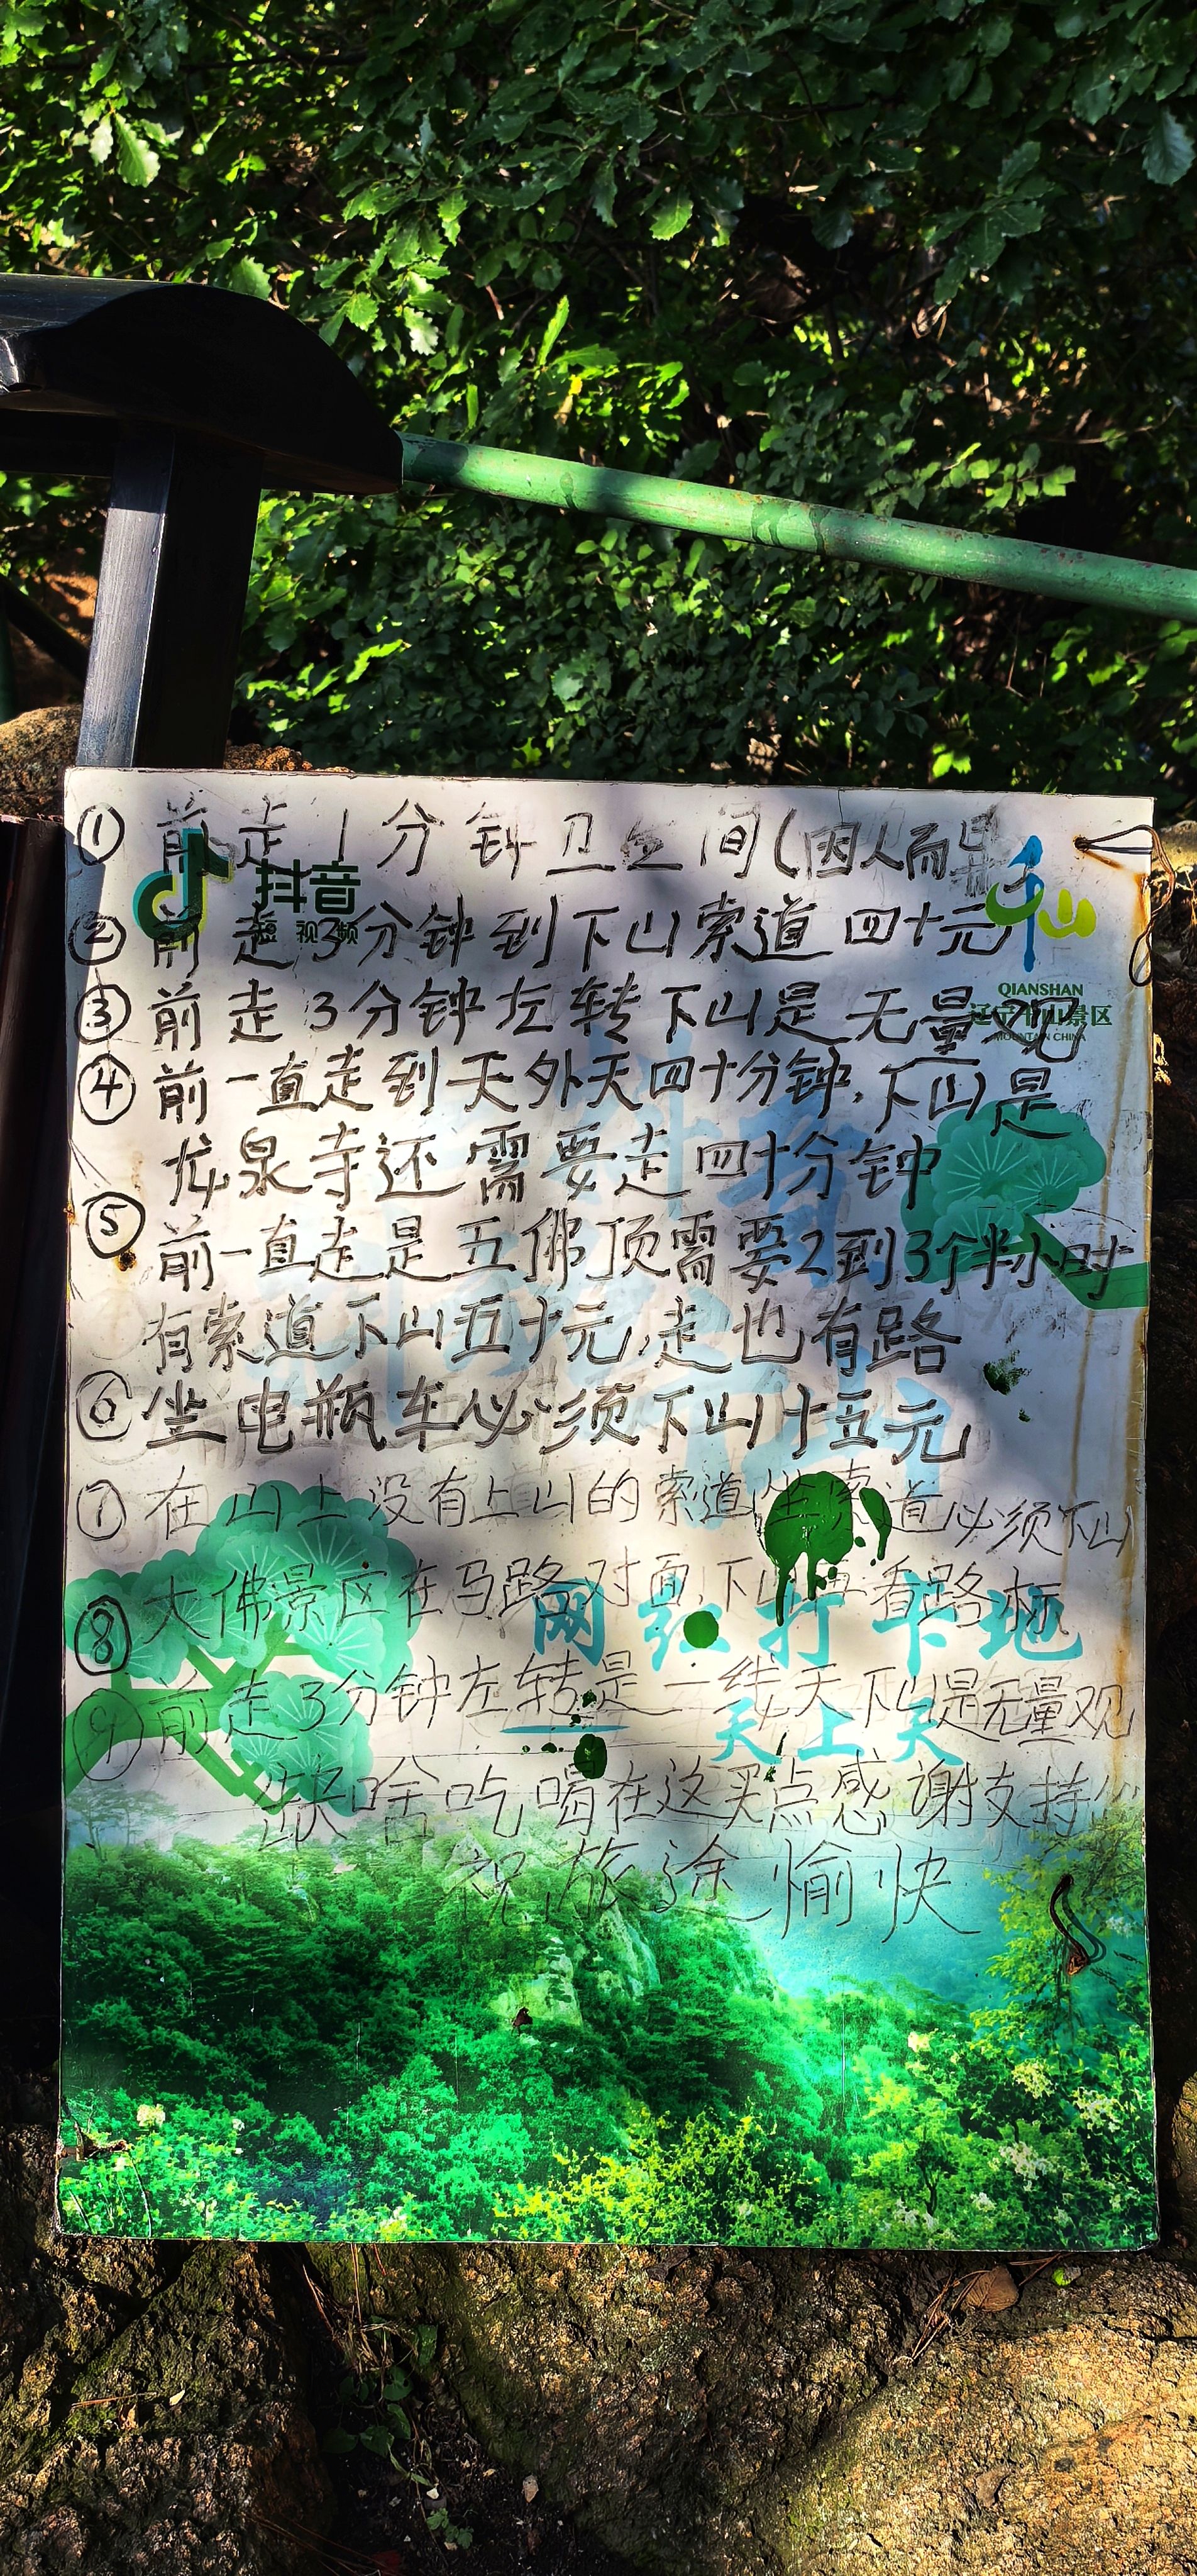 ①前走1分钟卫生间(因人而异
抖音
短视频
②前走3分钟到下山索道四十元
千山
QIANSHAN
辽宁千山景区
MOUNTAIN CHINA
③前走3分钟左转下山是无量观
④前一直走到天外天四十分钟.下山是
龙泉寺还需要走四十分钟
⑤前一直走是五佛顶需要2到3个半小时
有索道下山五十元,走也有路
⑥坐电瓶车必须下山十五元
⑦在山上没有上山的索道,坐索道必须下山
⑧大佛景区在马路对面,下山看路标
网红打卡地
⑨前走3分钟左转是一线天下山是无量观
天上天
缺啥吃喝在这买点感谢支持
祝旅途愉快